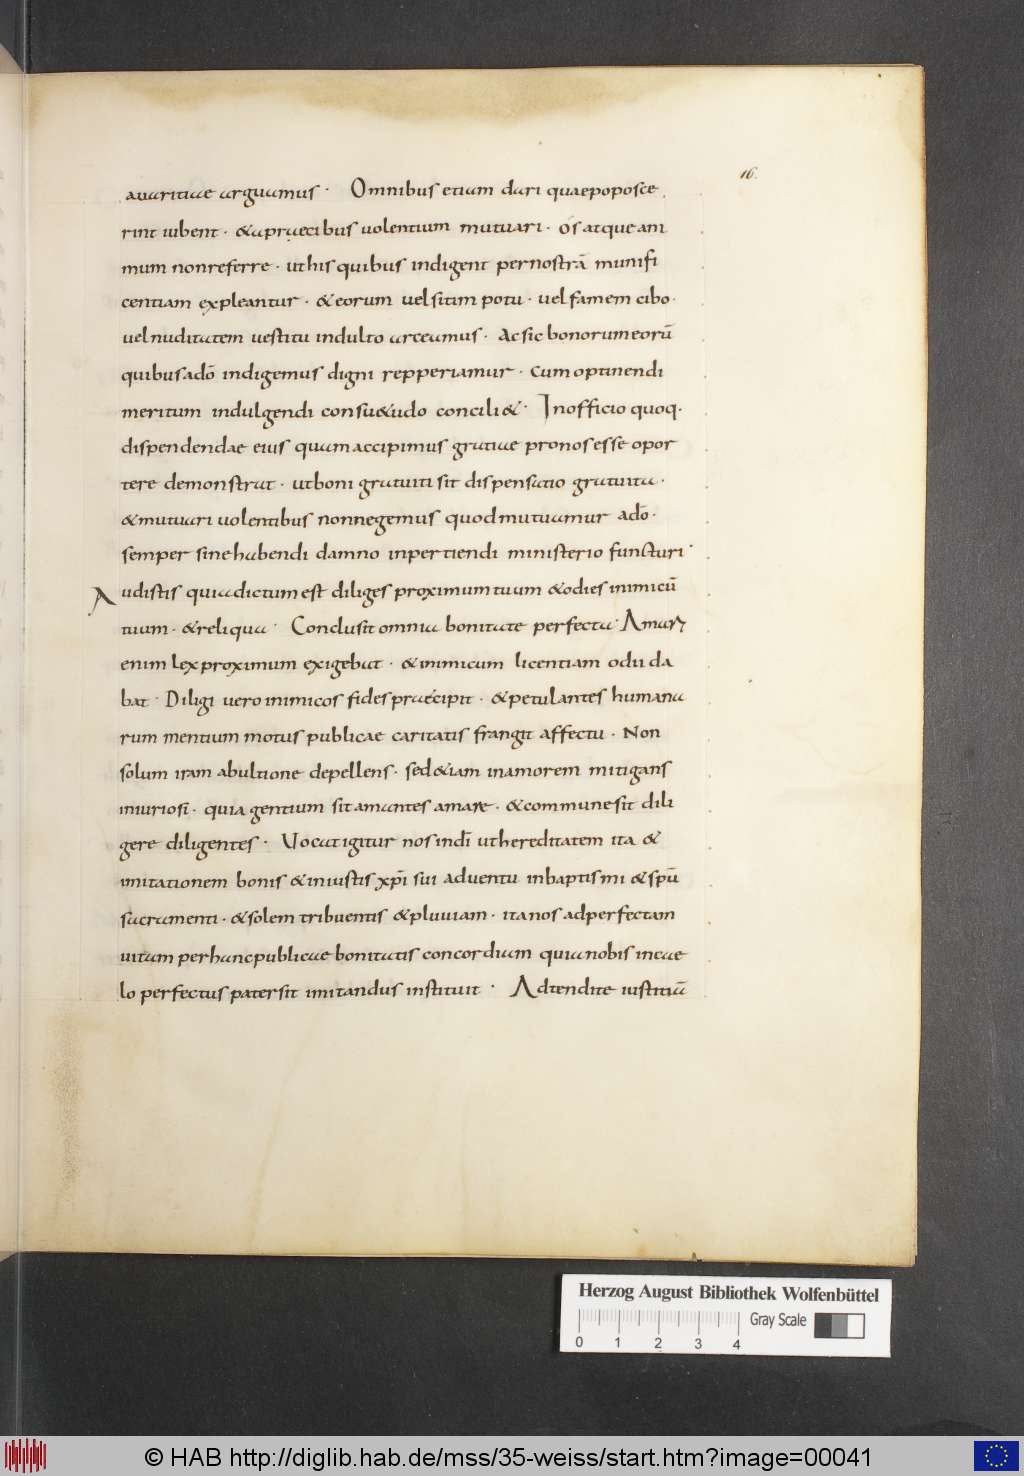 16.
auaritiae arguamus · Omnibus etiam dari quaepoposce
rint iubent · &apraecibus uolentium mutuari · os atque ani
mum nonreferre · uthis quibus indigent pernostrā munifi
centiam expleantur · &eorum uel sitim potu · uel famem cibo ·
uel nuditatem uestitu indulto arceamus · Ac sic bonorum eorū
quibus adō indigemus digni repperiamur · cum optinendi
meritum indulgendi consu&udo concili& · In officio quoq·
dispendendae eius quam accipimus gratiae pronos esse opor
tere demonstrat · ut boni gratuiti sit dispensatio gratuita ·
&mutuari uolentibus nonnegemus quod mutuamur adō ·
semper sine habendi damno inpertiendi ministerio functuri ·
Audistis quia dictum est diliges proximum tuum &odies inimicū
tuum · &reliqua · Conclusit omnia bonitate perfecta · Amari
enim lex proximum exigebat · &inimicum licentiam odii da
bat · Diligi uero inimicos fides praecipit · &petulantes humana
rum mentium motus publicae caritatis frangit affectu · Non
solum iram abultione depellens · sed &iam inamorem mitigans
iniuriosi · quia gentium sit amantes amare · &commune sit dili
gere diligentes · Uocat igitur nos indī uthereditatem ita &
imitationem bonis &iniustis xp̄i sui aduentu inbaptismi &spū
sacramenti · &solem tribuentis &pluuiam · ita nos adperfectam
uitam perhanc publicae bonitatis concordiam quia nobis incae
lo perfectus pater sit imitandus instituit · Adtendite iustitiā
Herzog August Bibliothek Wolfenbüttel
Gray Scale
0 1 2 3 4
© HAB http://diglib.hab.de/mss/35-weiss/start.htm?image=00041